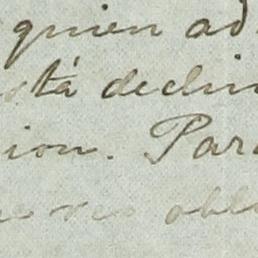 quien ad
stá declin
ion. Para
ves obli